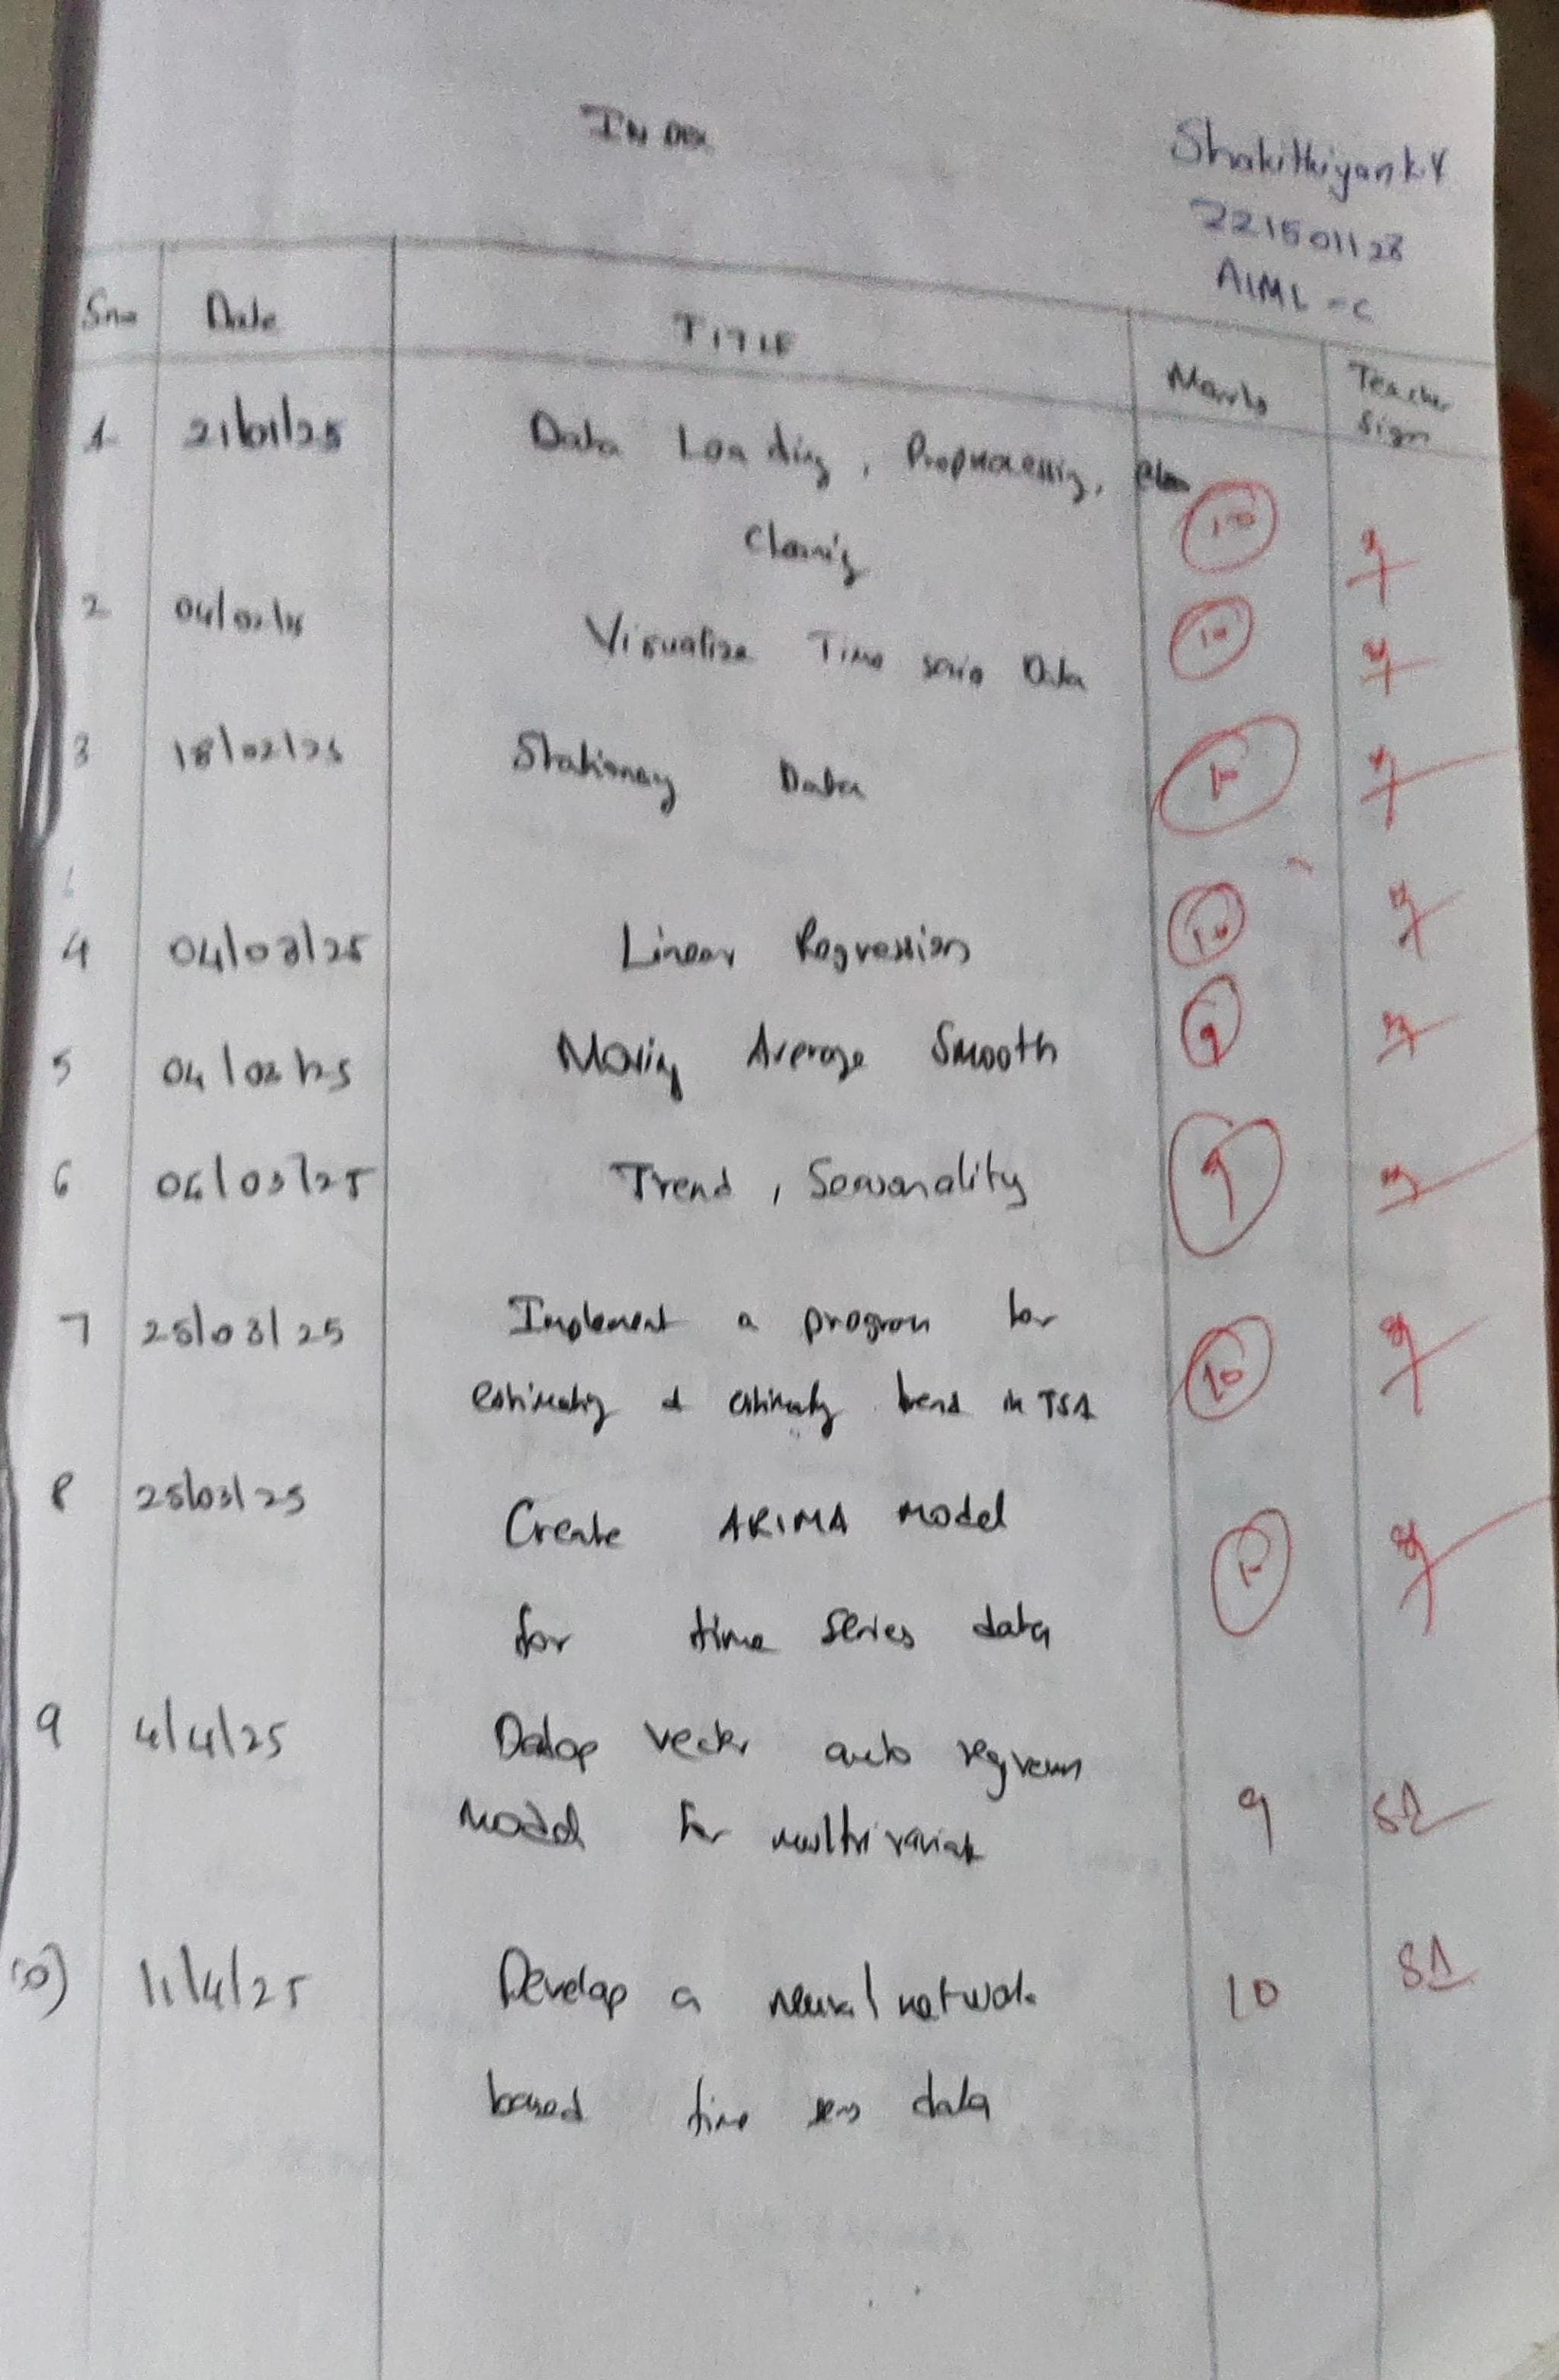 INDEX
Shakithiyan k.Y
221501128
AIML - C
Sno Date TITLE Marks Teacher Sign
1 21/01/25 Data Loading, Preprocessing,
10
2 04/02/25 Visualize Time Data 10
3 18/02/25 Stationary Data 10
4 04/03/25 Linear Regression 10
5 Moving Average Smooth 9
6 Trend, Seasonality 9
7 25/03/25 Implement a program for
estimating & trend in TSA 10
8 25/03/25 Create ARIMA Model 10
for time series data
9 4/4/25 vector auto
Model for multivariate 9
10) 11/4/25 Develop a neural network 10
based time data